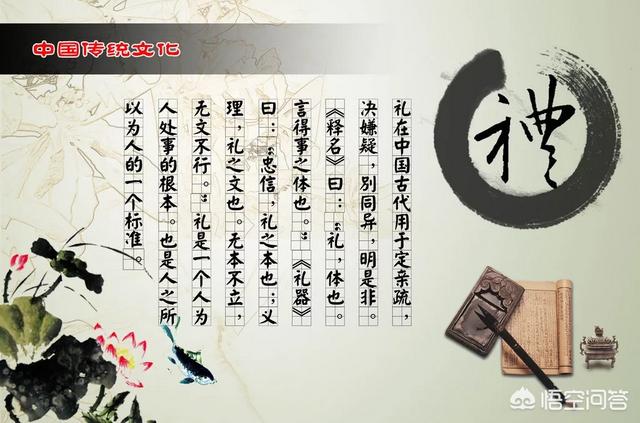 中国传统文化
禮
礼在中国古代用于定亲疏，
决嫌疑，别同异，明是非。
《释名》曰：“礼，体也。
言得事之体也。”《礼器》
曰：“忠信，礼之本也；义
理，礼之文也。无本不立，
无文不行。”礼是一个人为
人处事的根本。也是人之所
以为人的一个标准。
悟空问答